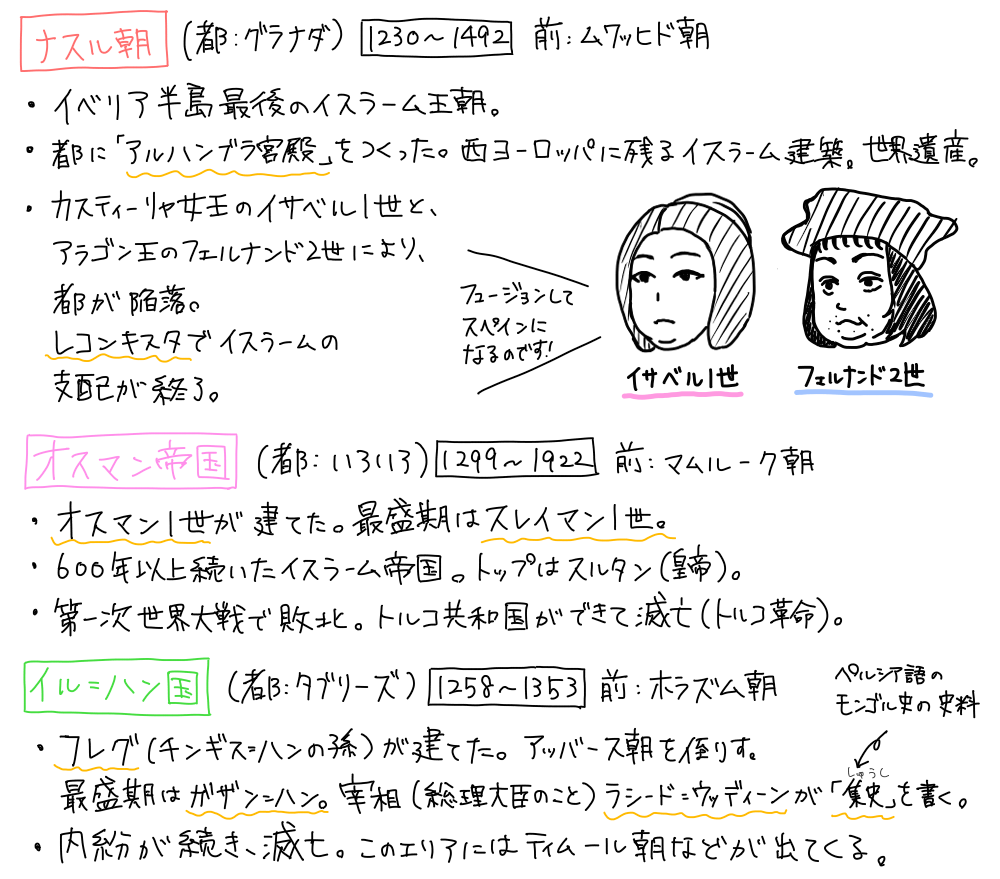 ナスル朝 (都:グラナダ) 1230～1492 前:ムワッヒド朝
・イベリア半島最後のイスラーム王朝。
・都に「アルハンブラ宮殿」をつくった。西ヨーロッパに残るイスラーム建築。世界遺産。
・カスティーリャ女王のイサベル1世と、
アラゴン王のフェルナンド2世により、
都が陥落。
レコンキスタでイスラームの
支配が終了。
フュージョンして
スペインに
なるのです!
イサベル1世
フェルナンド2世
オスマン帝国 (都:いろいろ) 1299～1922 前:マムルーク朝
・オスマン1世が建てた。最盛期はスレイマン1世。
・600年以上続いたイスラーム帝国。トップはスルタン(皇帝)。
・第一次世界大戦で敗北。トルコ共和国ができて滅亡(トルコ革命)。
イル=ハン国 (都:タブリーズ) 1258～1353 前:ホラズム朝
ペルシア語の
モンゴル史の史料
・フレグ(チンギス=ハンの孫)が建てた。アッバース朝を倒す。
しゅうし
最盛期はガザン=ハン。宰相(総理大臣のこと)ラシード=ウッディーンが「集史」を書く。
・内紛が続き、滅亡。このエリアにはティムール朝などが出てくる。